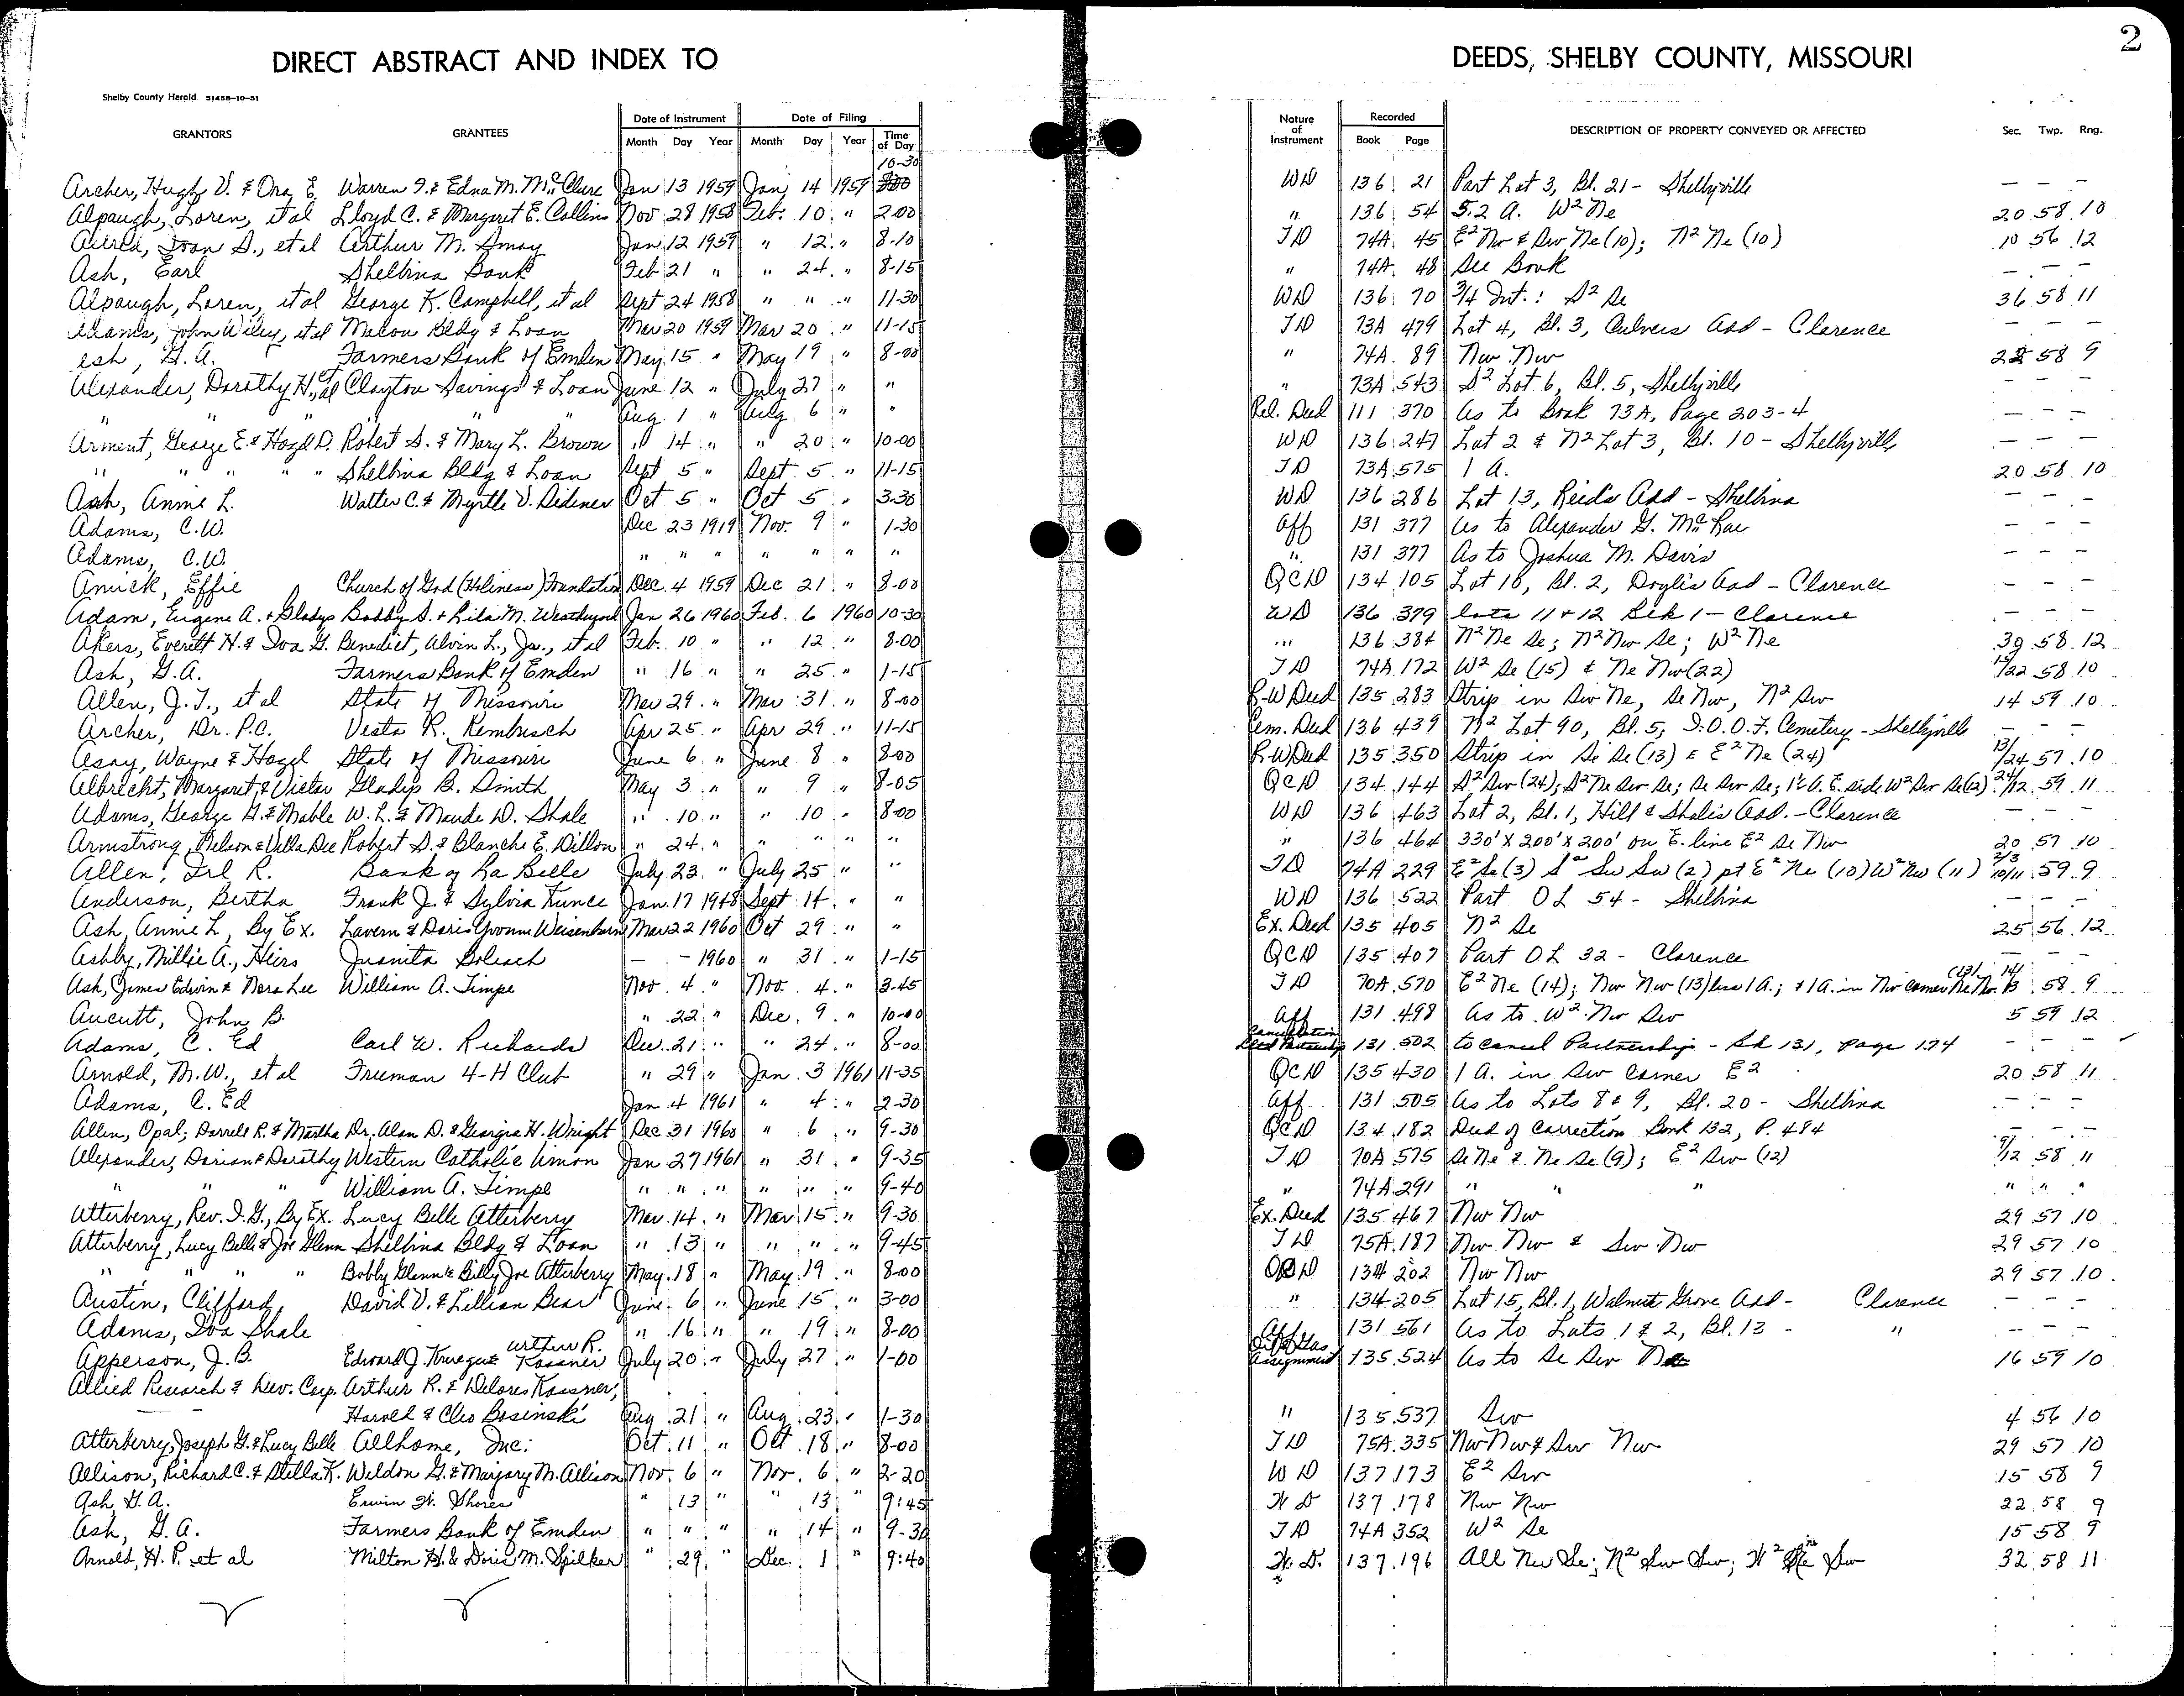 2
DIRECT ABSTRACT AND INDEX TO DEEDS, SHELBY COUNTY, MISSOURI
Shelby County Herald 51458-10-51
Date of Instrument Date of Filing Nature of Instrument Recorded
GRANTORS GRANTEES Month Day Year Month Day Year Time of Day Book Page DESCRIPTION OF PROPERTY CONVEYED OR AFFECTED Sec. Twp. Rng.
10-30
Archer, Hugh V. & Ora E. Warren I. & Edna M. McClure Jan 13 1959 Jan 14 1959 WD 136 21 Part Lot 3, Bl. 21 - Shelbyville — — —
Alpaugh, Loren, et al Lloyd C. & Margaret E. Collins Nov 28 1958 Feb. 10 " 2-00 " 136 54 5.2 A. W² Ne 20 58 10
Joan S., et al Arthur M. Amay Jan 12 1959 " 12 " 8-10 TD 74A 45 E² Nw & Sw Ne (10); N² Ne (10) 10 56 12
Ash, Earl Shelbina Bank Feb 21 " " 24 " 8-15 " 74A 48 See Book — — —
Alpaugh, Loren, et al George K. Campbell, et al Sept 24 1958 " " " 11-30 WD 136 70 3/4 Int.: S² Se 36 58 11
Adams, John Wiley, et al Macon Bldg & Loan Mar 20 1959 Mar 20 " 11-15 TD 73A 479 Lot 4, Bl. 3, Culvers Add - Clarence — — —
Ash, G.A. Farmers Bank of Emden May 15 " May 19 " 8-00 " 74A 89 Nw Nw 22 58 9
Alexander, Dorothy H., et al Clayton Savings & Loan June 12 " July 27 " " " 73A 543 S² Lot 6, Bl. 5, Shelbyville — — —
" " " " " Aug. 1 " Aug. 6 " " Rel. Deed 111 370 As to Book 73A, Page 203-4 — — —
Arment, George E. & Hazel D. Robert S. & Mary L. Brown " 14 " " 20 " 10-00 WD 136 247 Lot 2 & N² Lot 3, Bl. 10 - Shelbyville — — —
" " " " " Shelbina Bldg & Loan Sept 5 " Sept. 5 " 11-15 TD 73A 575 1 A. 20 58 10
Ash, Annie L. Walter C. & Myrtle V. Didener Oct 5 " Oct 5 " 3-30 WD 136 286 Lot 13, Reids Add - Shelbina — — —
Adams, C.W. Dec 23 1919 Nov. 9 " 1-30 Aff 131 377 As to Alexander G. McRae — — —
Adams, C.W. " " " " " " " " 131 377 As to Joshua M. Davis — — —
Amick, Effie Church of God (Holiness) Foundation Dec. 4 1959 Dec 21 " 8-00 QCD 134 105 Lot 10, Bl. 2, Doyle's Add - Clarence — — —
Adam, Eugene A. + Gladys Bobby S. + Lila M. Weatherford Jan 26 1960 Feb. 6 1960 10-30 WD 136 379 lots 11 + 12 Blk 1 - Clarence — — —
Akers, Everett H. & Iva G. Benedict, Alvin L., Jr., et al Feb. 10 " " 12 " 8-00 " 136 384 N² Ne Se; N² Nw Se; W² Ne 39 58 12
Ash, G.A. Farmers Bank of Emden " 16 " " 25 " 1-15 TD 74A 172 W² Se (15) & Ne Nw (22) 15/22 58 10
Allen, J.T., et al State of Missouri Mar 29 " Mar 31 " 8-00 R-W Deed 135 283 Strip in Sw Ne, Se Nw, N² Sw 14 59 10
Archer, Dr. P.C. Vesta R. Rembusch Apr 25 " Apr 29 " 11-15 Cem. Deed 136 439 N² Lot 90, Bl. 5, I.O.O.F. Cemetery - Shelbyville — — —
Asay, Wayne & Hazel State of Missouri June 6 " June 8 " 8-00 R-W Deed 135 350 Strip in Se Se (13) & E² Ne (24) 13/24 57 10
Albrecht, Margaret & Victor Gladys B. Smith May 3 " " 9 " 8-05 QCD 134 144 S² Sw (24); S² Ne Sw Se; Se Sw Se; 1½ A. E. side W² Sw Se (12) 24/12 59 11
Adams, George G. & Mable W.L. & Maude D. Shale " 10 " " 10 " 8-00 WD 136 463 Lot 2, Bl. 1, Hill & Shale's Add. - Clarence — — —
Armstrong, Nelson & Willa Dee Robert D. & Blanche E. Dillon " 24 " " " " " " 136 464 330' X 200' X 200' on E. line E² Se Nw 20 57 10
Allen, Irl R. Bank of La Belle July 23 " July 25 " " TD 74A 229 E² Se (3) S² Sw Sw (2) pt E² Ne (10) W² Nw (11) 2/3 10/11 59 9
Anderson, Bertha Frank J. & Sylvia Kunce Jan. 17 1948 Sept 14 " " WD 136 522 Part OL 54 - Shelbina — — —
Ash, Annie L, By Ex. Lavern & Doris Yvonne Weisenborn Mar 22 1960 Oct 29 " " Ex. Deed 135 405 N² Se 25 56 12
Ashby, Millie A., Heirs Juanita — - 1960 " 31 " 1-15 QCD 135 407 Part OL 32 - Clarence — — —
Ash, James Edwin & Nora Lee William A. Timpe Nov. 4 " Nov. 4 " 3-45 TD 70A 570 E² Ne (14); Nw Nw (13) less 1 A.; + 1 A. in Nw corner Ne Nw (13) 14/13 58 9
Aucutt, John B. " 22 " Dec. 9 " 10-00 Aff 131 498 As to W² Nw Sw 5 59 12
Adams, C. Ed Carl W. Richards Dec. 21 " " 24 " 8-00 Cancellation 131 502 to cancel Partnership - Bk 131, page 174 — — —
Arnold, M.W., et al Freeman 4-H Club " 29 " Jan. 3 1961 11-35 QCD 135 430 1 A. in Sw corner E² 20 58 11
Adams, C. Ed Jan 4 1961 " 4 " 2-30 Aff 131 505 As to Lots 8 & 9, Bl. 20 - Shelbina — — —
Allen, Opal; Darrell R. & Martha Dr. Alan D. & Georgia H. Wright Dec 31 1960 " 6 " 9-30 QCD 134 182 Deed of Correction Book 132, P. 484 — — —
Alexander, Dorian & Dorothy Western Catholic Union Jan 27 1961 " 31 " 9-35 TD 70A 575 Se Ne & Ne Se (9); E² Sw (12) 9/12 58 11
" " " William A. Timpe " " " " " " 9-40 " 74A 291 " " " " " "
Atterberry, Rev. I.G., By Ex. Lucy Belle Atterberry Mar. 14 " Mar. 15 " 9-30 Ex. Deed 135 467 Nw Nw 29 57 10
Atterberry, Lucy Belle & Joe Glenn Shelbina Bldg & Loan " 13 " " " " 9-45 TD 75A 187 Nw Nw & Sw Nw 29 57 10
" " " " Bobby Glenn & Billy Joe Atterberry May 18 " May 19 " 8-00 QCD 134 202 Nw Nw 29 57 10
Austin, Clifford David V. & Lillian Bear June 6 " June 15 " 3-00 " 134 205 Lot 15, Bl. 1, Walnut Grove Add - Clarence — — —
Adams, Iva Shale " 16 " " 19 " 8-00 Aff 131 561 As to Lots 1 & 2, Bl. 13 - " — — —
Apperson, J.B. Edward J. Krueger & Arthur R. Kassner July 20 " July 27 " 1-00 Oil & Gas Assignment 135 524 As to Se Sw 16 59 10
Allied Research & Dev. Corp. Arthur R. & Delores Kassner,
Harold & Cleo Bosinski Aug. 21 " Aug. 23 " 1-30 " 135 537 Sw 4 56 10
Atterberry, Joseph G. & Lucy Belle Allhome, Inc. Oct. 11 " Oct. 18 " 8-00 TD 75A 335 Nw Nw & Sw Nw 29 57 10
Allison, Richard C. & Stella K. Weldon G. & Marjory M. Allison Nov. 6 " Nov. 6 " 2-20 WD 137 173 E² Sw 15 58 9
Ash, G.A. Erwin W. Shores " 13 " " 13 " 9:45 WD 137 178 Nw Nw 22 58 9
Ash, G.A. Farmers Bank of Emden " " " " 14 " 9-30 TD 74A 352 W² Se 15 58 9
Arnold, H.P. et al Milton H. & Doris M. Spilker " 29 " Dec. 1 " 9:40 W.D. 137 196 All Nw Se; N² Sw Sw; W² Ne Sw 32 58 11